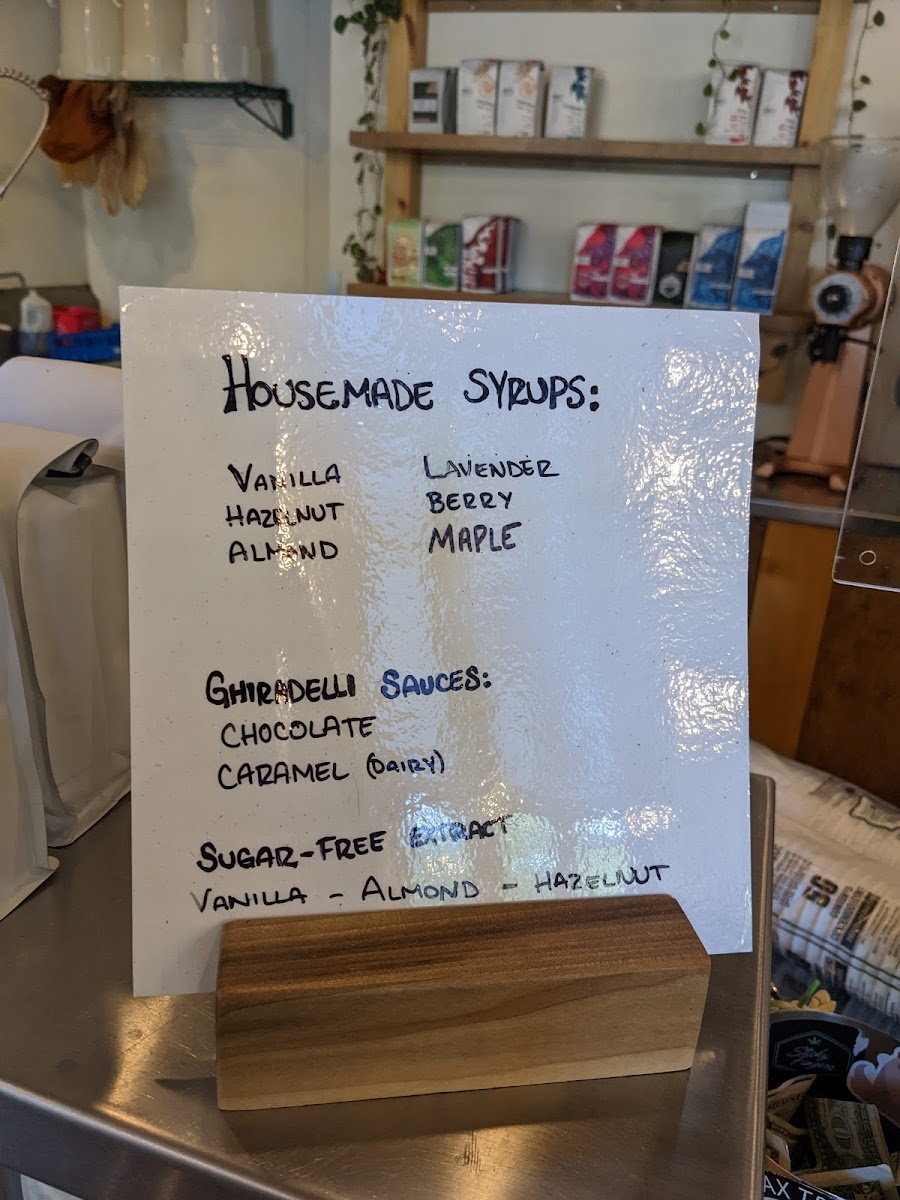 HOUSEMADE SYRUPS:
VANILLA LAVENDER
HAZELNUT BERRY
ALMOND MAPLE
GHIRADELLI SAUCES:
CHOCOLATE
CARAMEL (DAIRY)
SUGAR-FREE EXTRACT
VANILLA - ALMOND - HAZELNUT
50